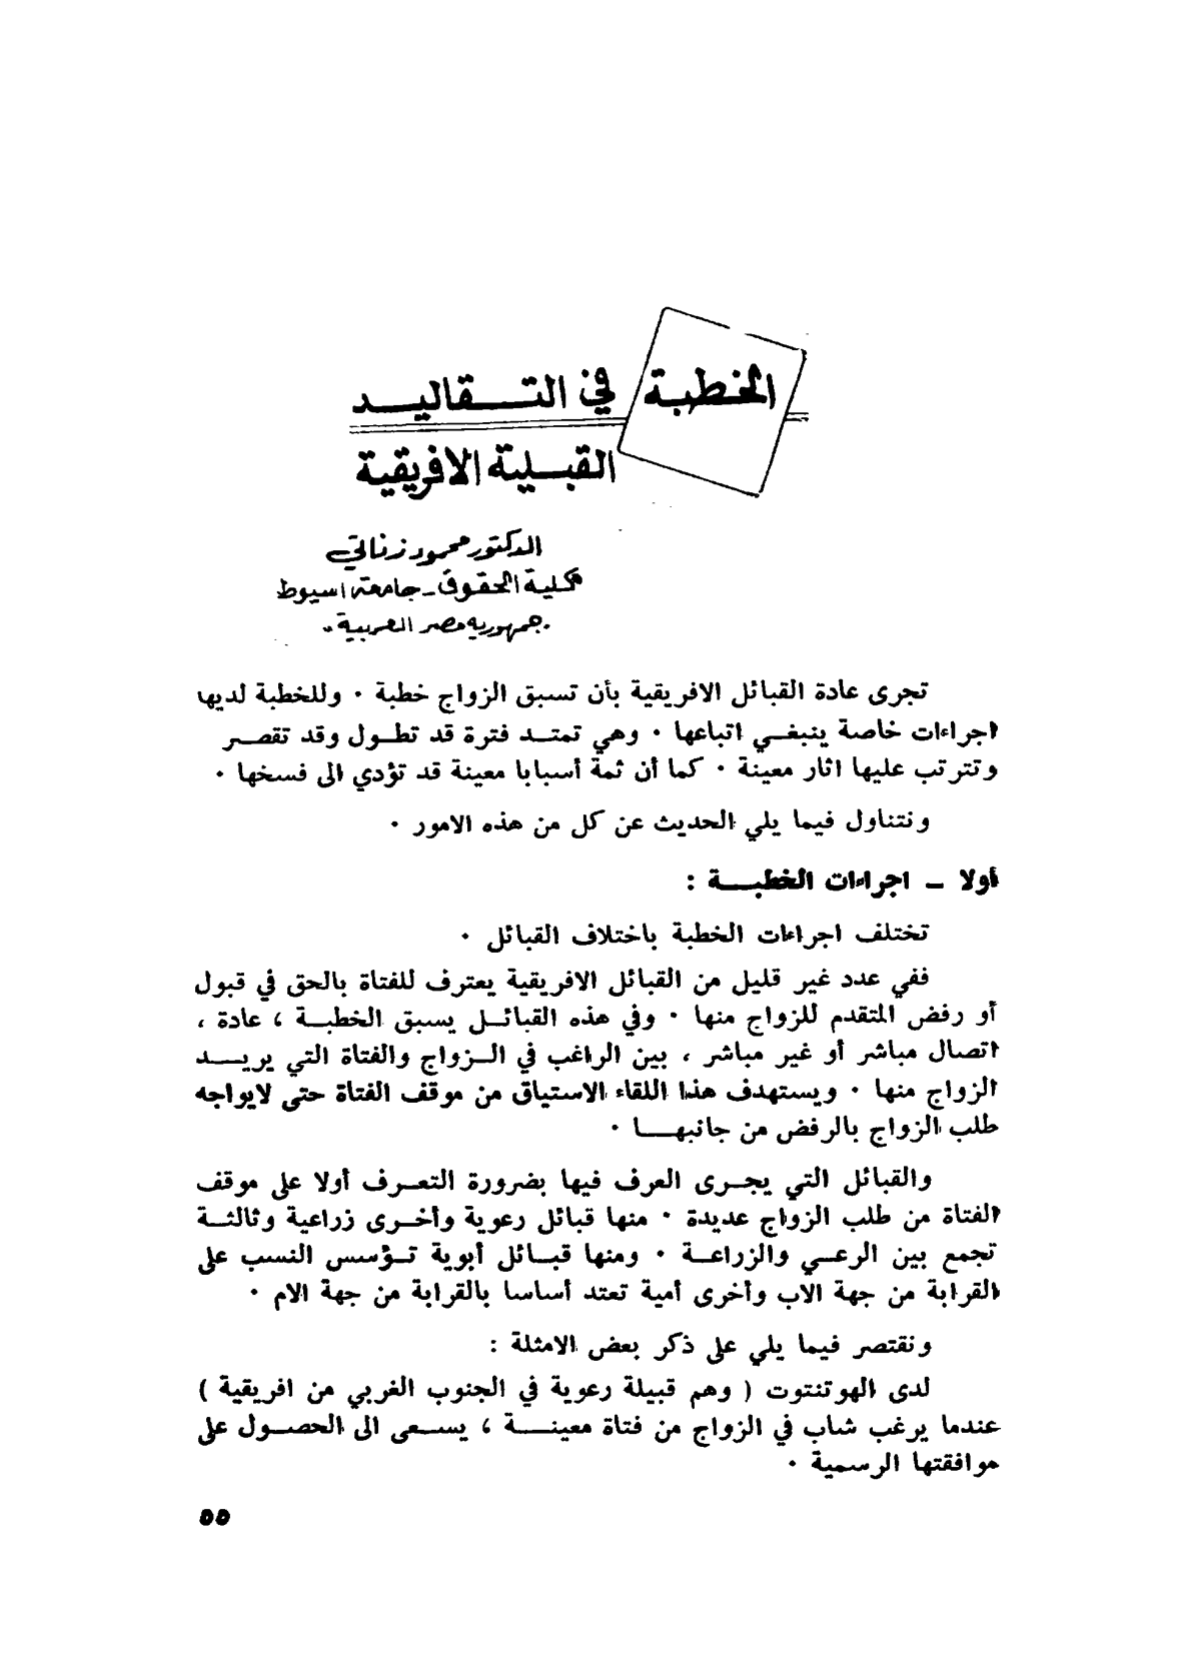 الخطبة في التقاليد
القبلية الافريقية
الدكتور محمود زناتي
كلية الحقوق - جامعة اسيوط
جمهورية مصر العربية
تجرى عادة القبائل الافريقية بأن تسبق الزواج خطبة . وللخطبة لديها
اجراءات خاصة ينبغي اتباعها . وهي تمتد فترة قد تطول وقد تقصر
وتترتب عليها اثار معينة . كما أن ثمة أسبابا معينة قد تؤدي الى فسخها .
ونتناول فيما يلي الحديث عن كل من هذه الامور .
أولا - اجراءات الخطبة :
تختلف اجراءات الخطبة باختلاف القبائل .
ففي عدد غير قليل من القبائل الافريقية يعترف للفتاة بالحق في قبول
أو رفض المتقدم للزواج منها . وفي هذه القبائل يسبق الخطبة ، عادة ،
اتصال مباشر أو غير مباشر ، بين الراغب في الزواج والفتاة التي يريد
الزواج منها . ويستهدف هذا اللقاء الاستياق من موقف الفتاة حتى لايواجه
طلب الزواج بالرفض من جانبها .
والقبائل التي يجرى العرف فيها بضرورة التعرف أولا على موقف
الفتاة من طلب الزواج عديدة . منها قبائل رعوية وأخرى زراعية وثالثة
تجمع بين الرعي والزراعة . ومنها قبائل أبوية تؤسس النسب على
القرابة من جهة الاب وأخرى أمية تعتد أساسا بالقرابة من جهة الام .
ونقتصر فيما يلي على ذكر بعض الامثلة :
لدى الهوتنتوت ( وهم قبيلة رعوية في الجنوب الغربي من افريقية )
عندما يرغب شاب في الزواج من فتاة معينة ، يسعى الى الحصول على
موافقتها الرسمية .
٥٥